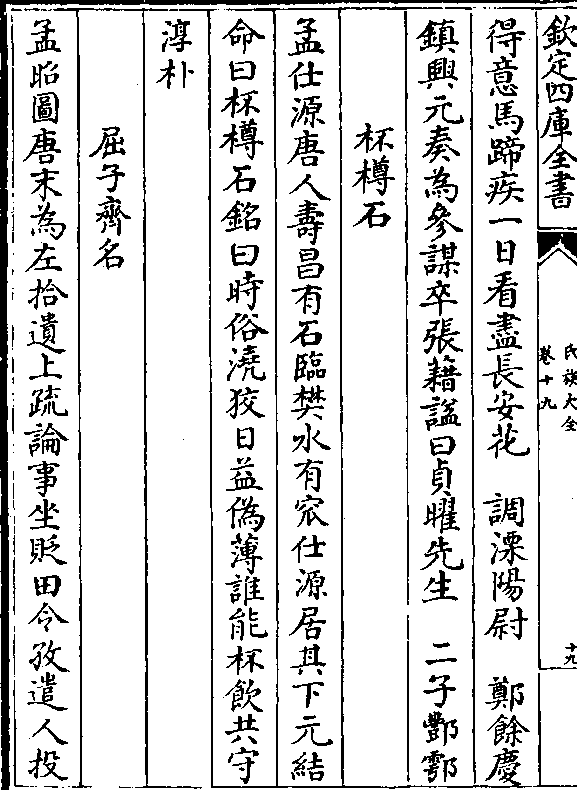 欽定四庫全書
氏族大全
卷十九
十九
得意馬蹄疾一日看盡長安花　調溧陽尉　鄭餘慶
鎮興元奏為參謀卒張籍諡曰貞曜先生　二子酆鄠
杯樽石
孟仕源唐人壽昌有石臨樊水有窊仕源居其下元結
命曰杯樽石銘曰時俗澆狡日益偽薄誰能杯飲共守
淳朴
屈子齊名
孟昭圖唐末為左拾遺上疏論事坐貶田令孜遣人投